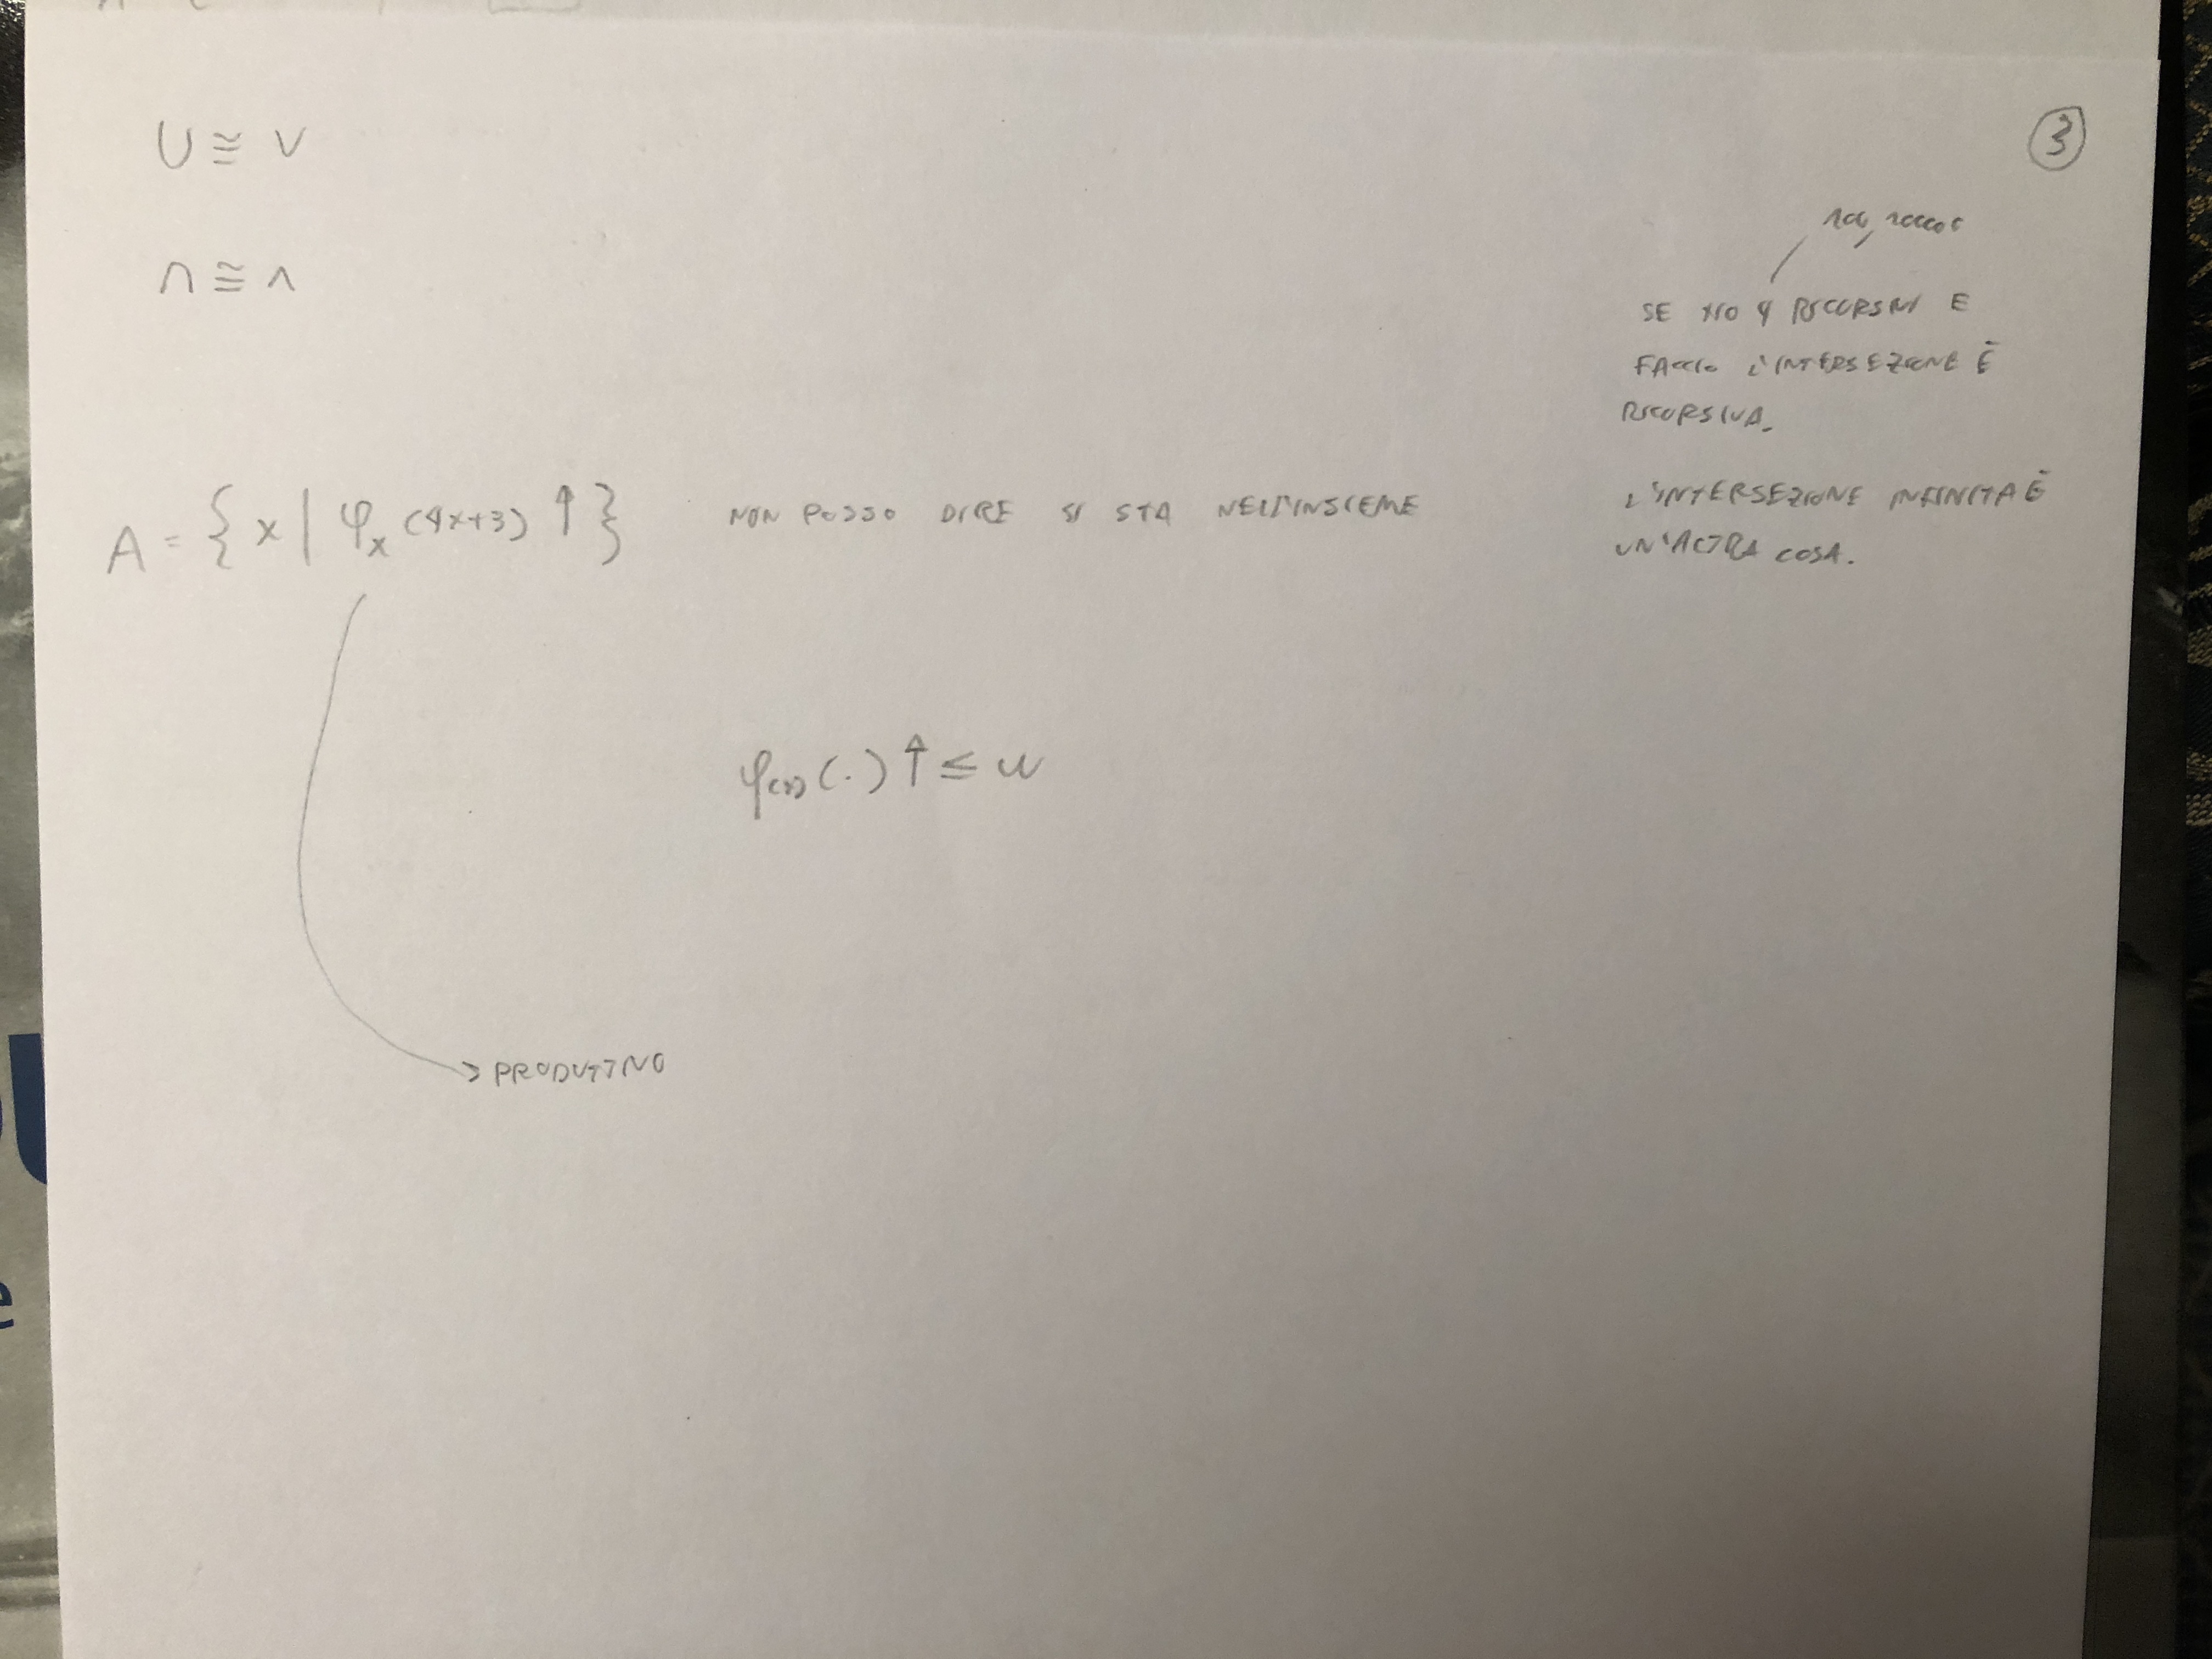 ∪ ≅ ∨
③
∩ ≅ ∧
SE HO 4 RICORSIVI E
FACCIO L'INTERSEZIONE È
RICORSIVA.
L'INTERSEZIONE INFINITA È
UN'ALTRA COSA.
A = { x | φₓ (4x+3) ↑ } NON POSSO DIRE SI STA NELL'INSIEME
(.) ↑ ≤ w
→ PRODUTTIVO